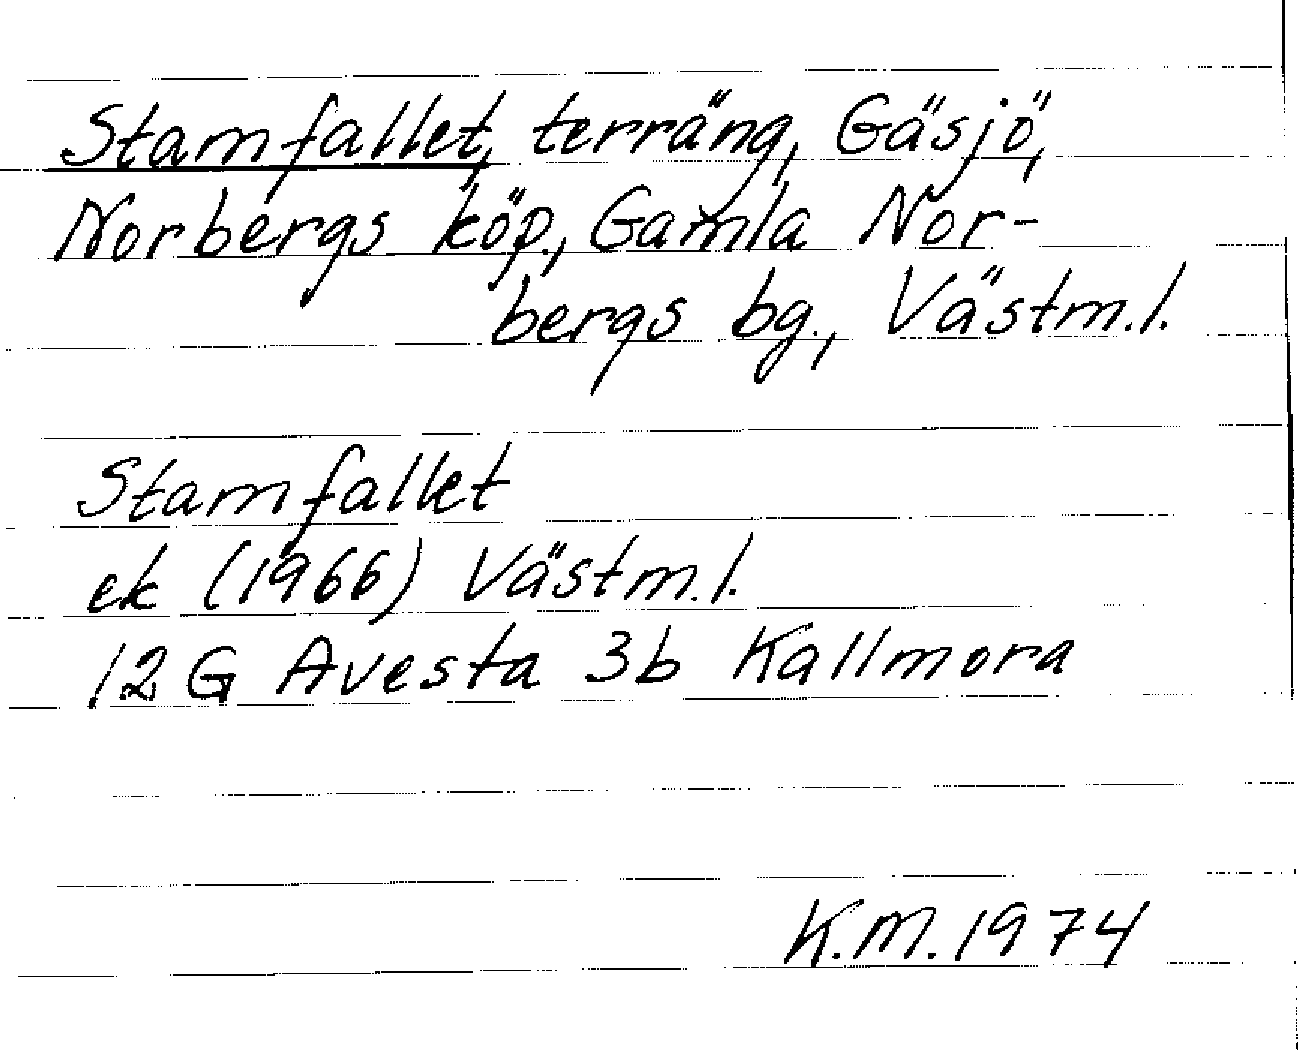 Stamfallet, terräng, Gäsjö,
Norbergs köp., Gamla Nor-
bergs bg., Västm.l.
Stamfallet
ek (1966) Västm.l.
12G Avesta 3b Kallmora
K.M. 1974